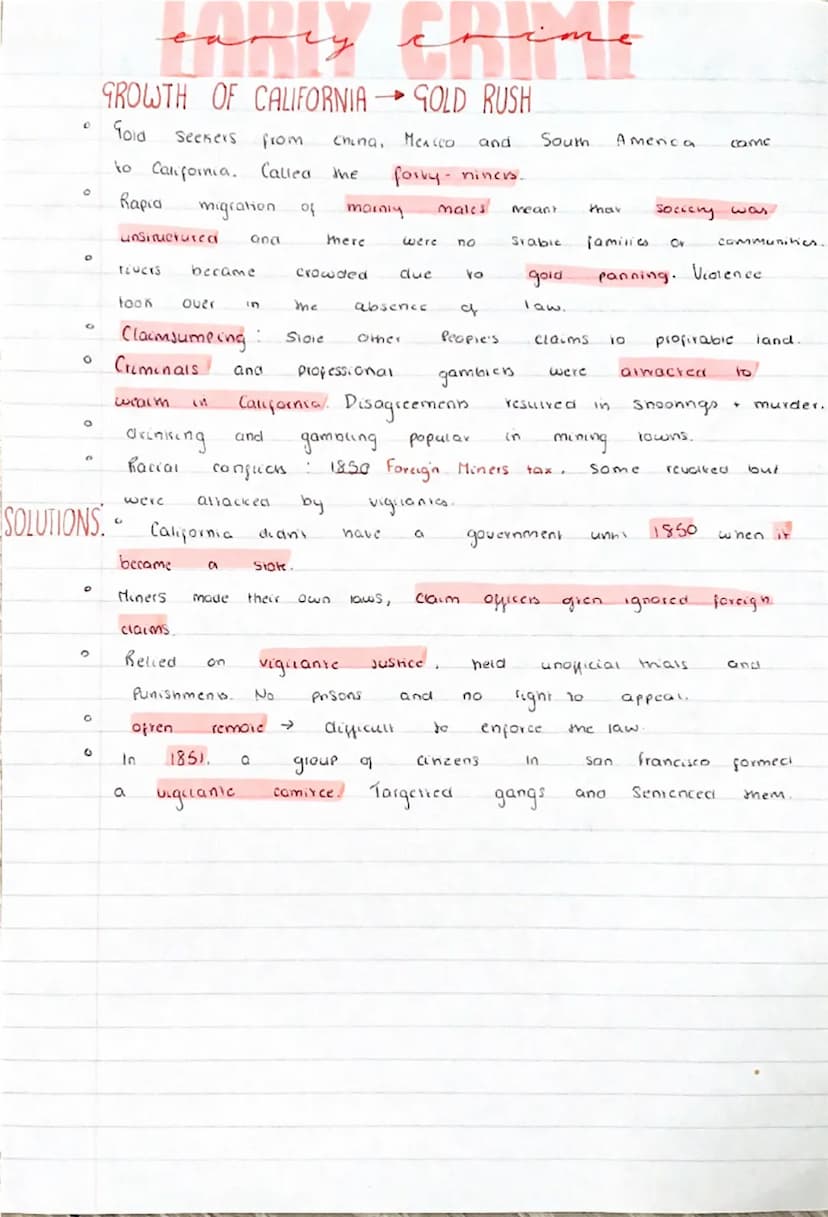 EARLY CRIME
early crime
GROWTH OF CALIFORNIA → GOLD RUSH
° Gold seekers from China, Mexico and South America came
to California. Called the forty-niners.
° Rapid migration of mainly males meant that society was
unstructured and there were no stable families or communities.
° rivers became crowded due to gold panning. Violence
took over in the absence of law.
° Claimsumping: Stole other People's claims to profitable land.
° Criminals and professional gamblers were attracted to
wealth in California. Disagreements resulved in shootings + murder.
° drinking and gambling popular in mining towns.
° Racial conflicts : 1850 Foreign Miners tax. Some revolted but
were attacked by vigilantes.
SOLUTIONS. ° California didn't have a government until 1850 when it
became a state.
° Miners made their own laws, claim officers often ignored foreign
claims.
° Relied on vigilante justice, held unofficial trials and
Punishments. No prisons and no right to appeal.
° often remote → difficult to enforce the law.
° In 1851, a group of citizens in San Francisco formed
a vigilante comitee. Targetted gangs and sentenced them.